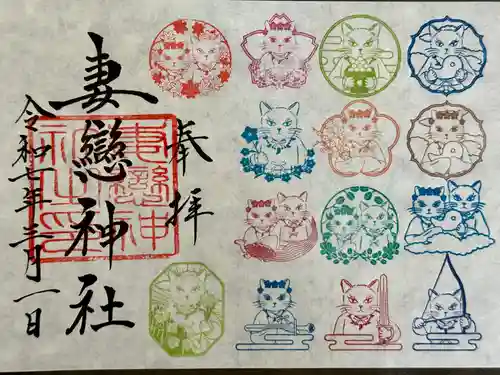 奉拝
妻戀神社
令和七年三月一日
妻戀神社之印